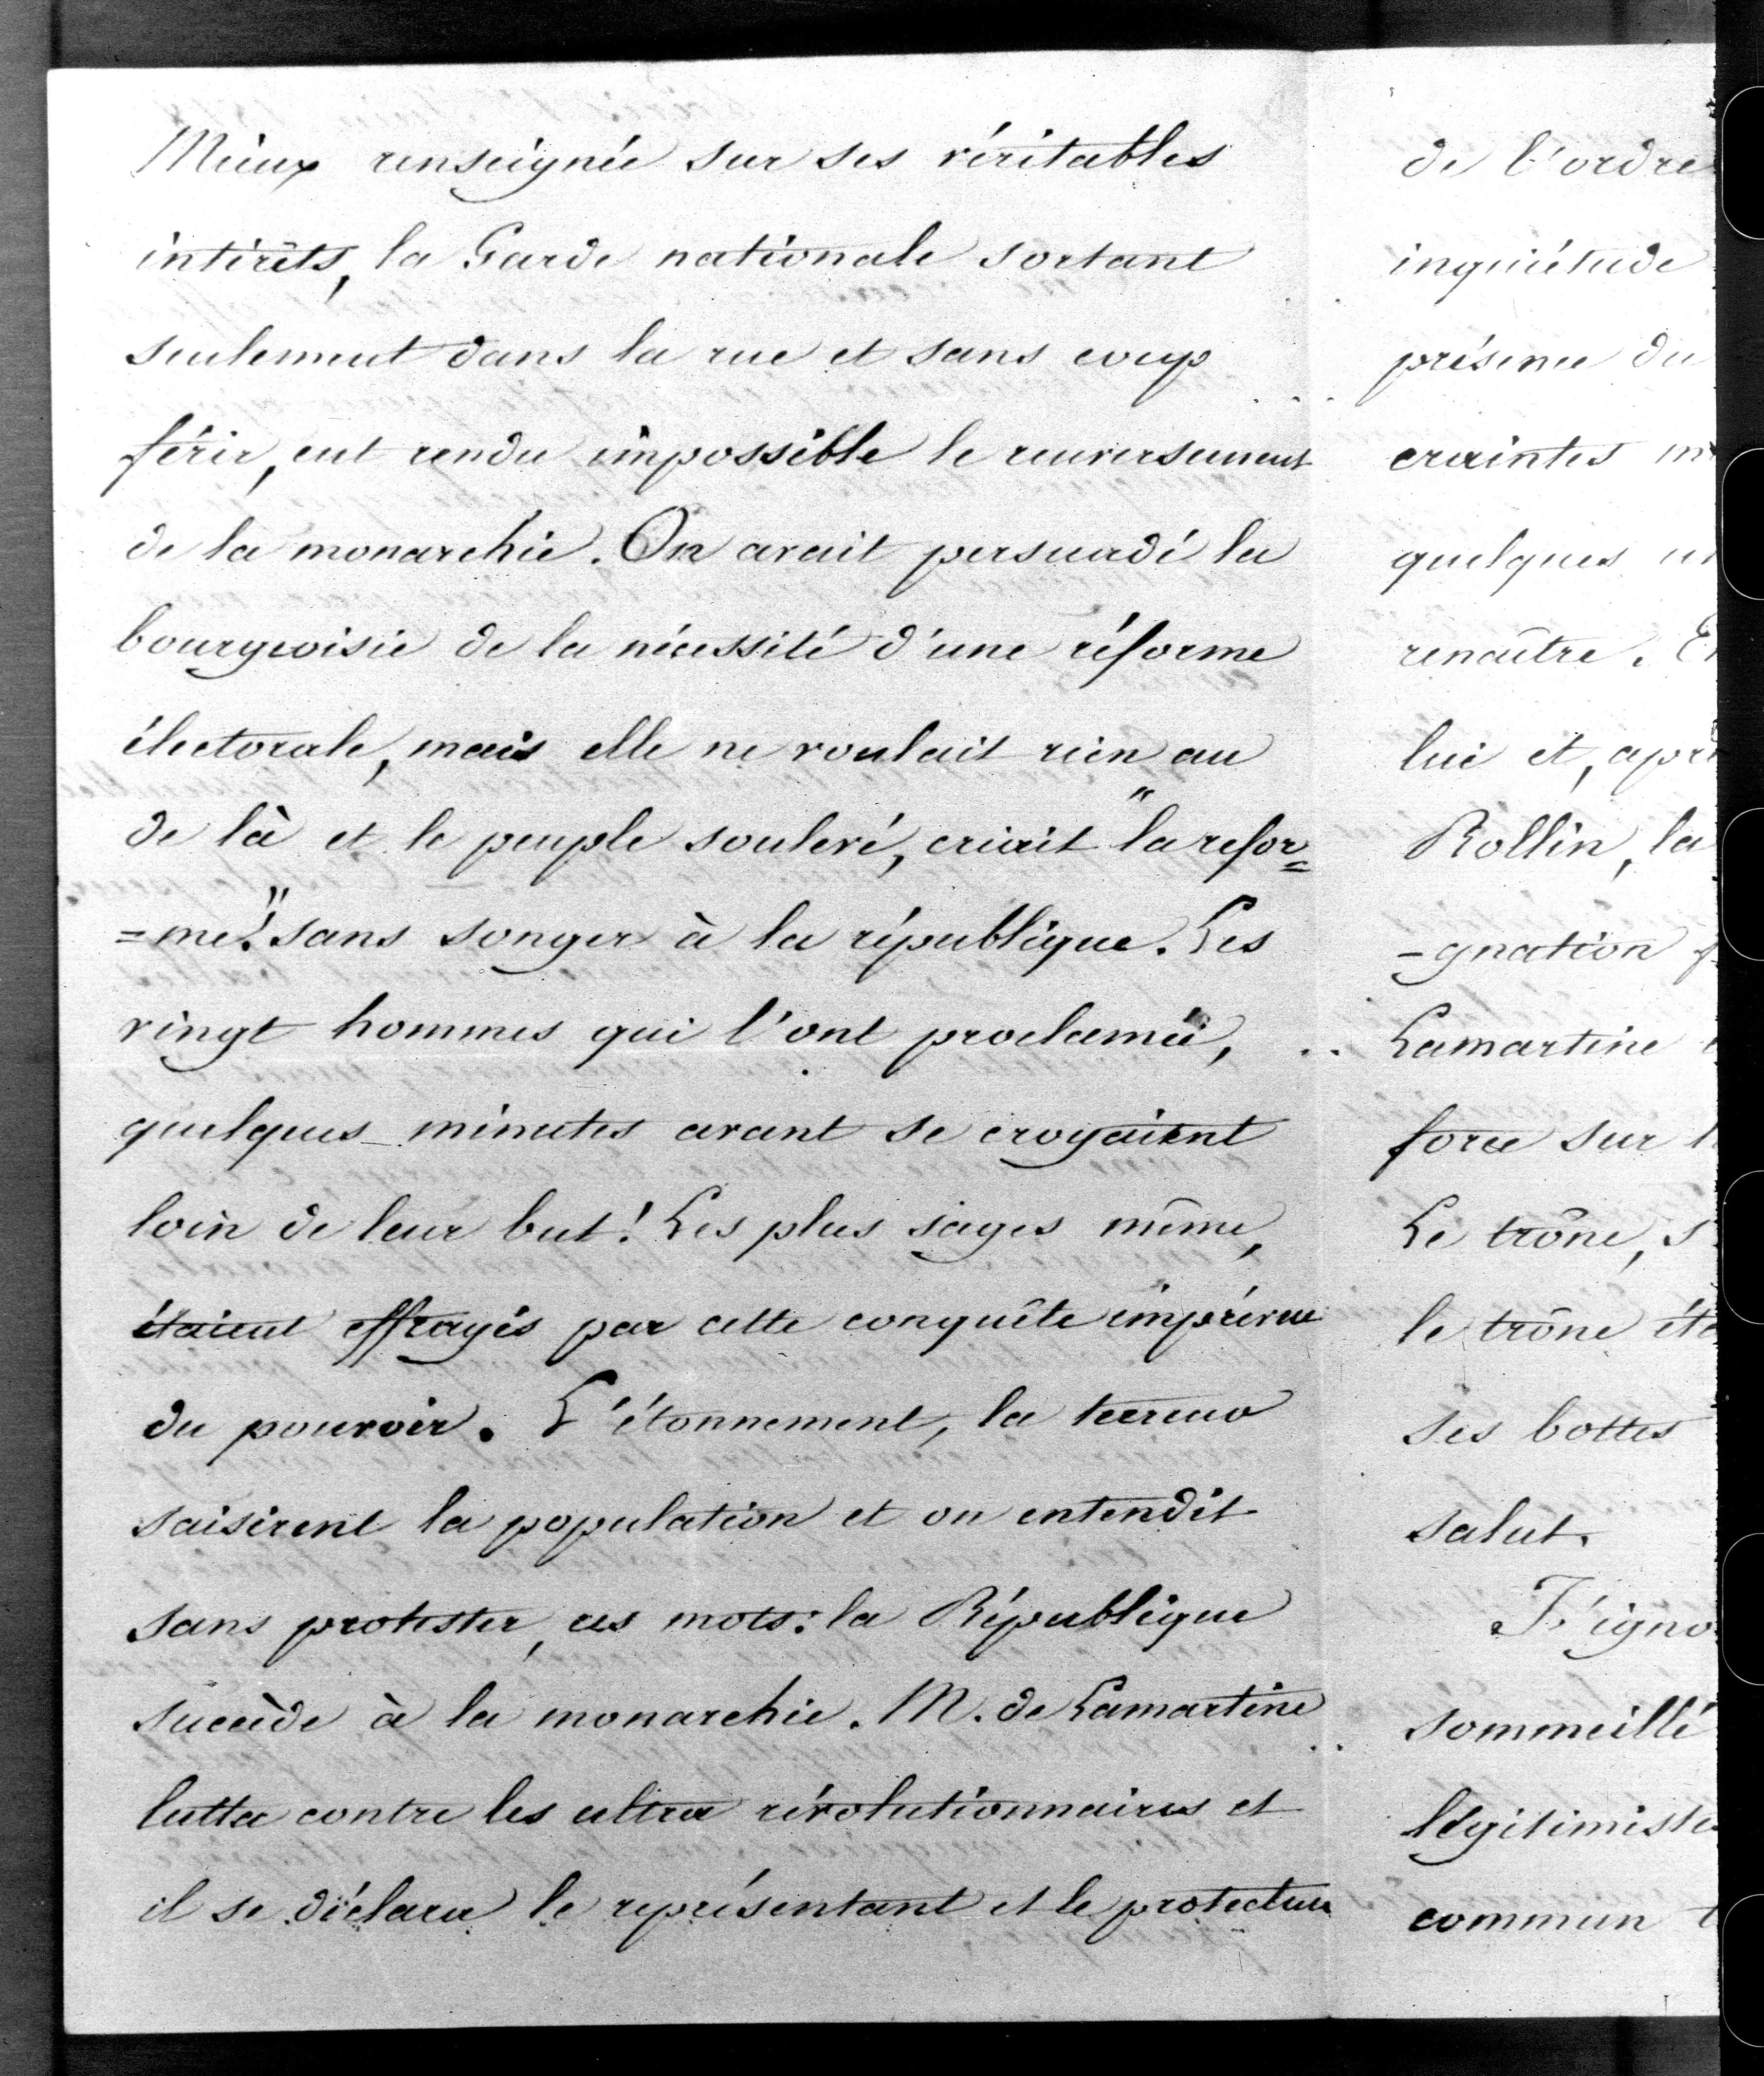 Mieux renseignée sur ses véritables
intérêts, la Garde nationale sortant
seulement dans la rue et sans coup
férir, eut rendu impossible le renversement
de la monarchie. On avait persuadé la
bourgeoisie de la nécessité d'une réforme
électorale, mais elle ne voulait rien au
de là et le peuple soulevé, criait "la refor=
=me!" sans songer à la république. Les
vingt hommes qui l'ont proclamée,
quelques minutes avant se croyaient
loin de leur but! Les plus sages même,
étaient effrayés par cette conquête imprévue
du pouvoir. L'étonnement, la terreur
saisirent la population et on entendit
sans protester, ces mots: la République
succède à la monarchie. M. de Lamartine
lutta contre les ultra révolutionnaires et
il se déclara le représentant et le protecteur
de l'ordre
inquiétude
présence du
craintes
quelques
renaître.
lui et, apr
Rollin, la
-gnation
Lamartine
force sur
Le trône, s
le trône éta
ses bottes
salut.
J'igno
sommeillé
légitimiste
commun